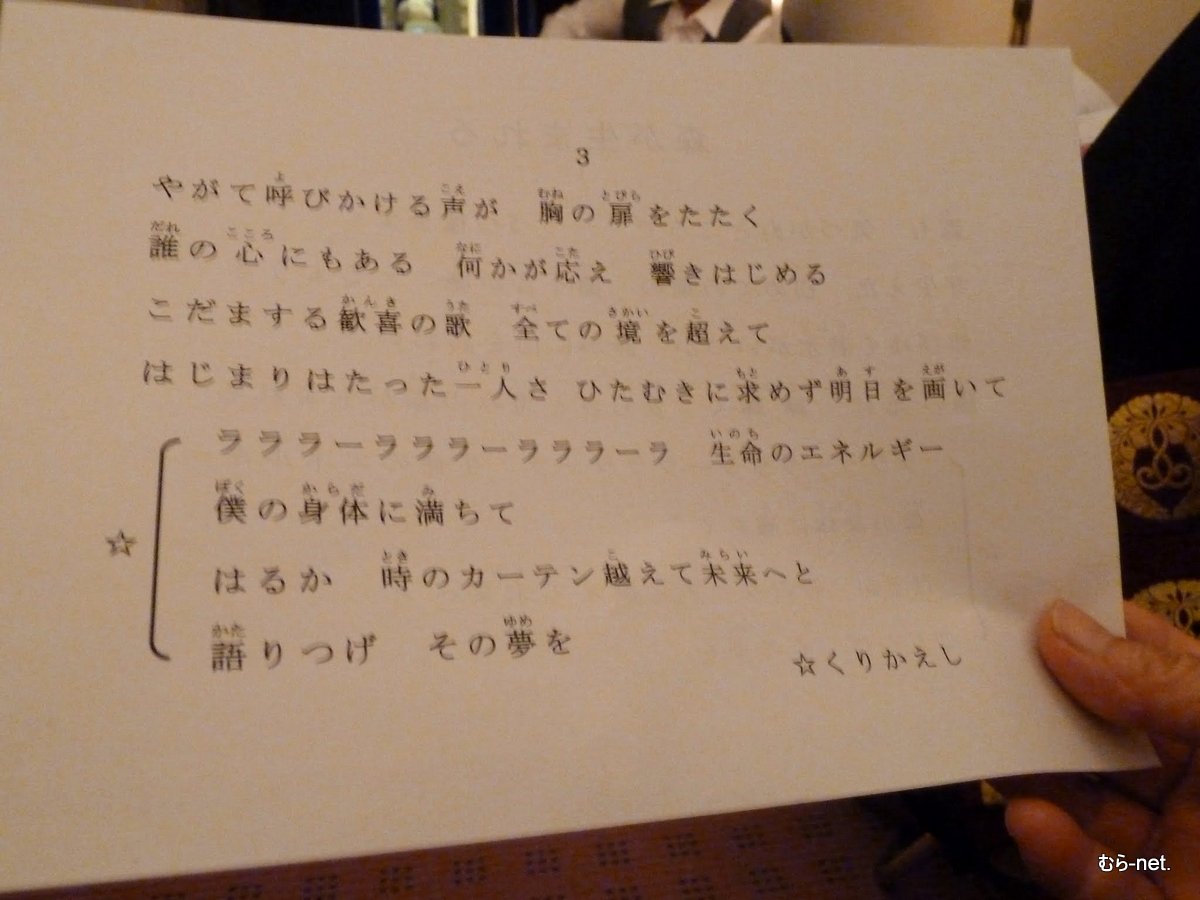 3
やがて呼びかける声が　胸の扉をたたく
誰の心にもある　何かが応え　響きはじめる
こだまする歓喜の歌　全ての境を超えて
はじまりはたった一人さ　ひたむきに求めず明日を画いて
ラララーラララーラララーラ　生命のエネルギー
僕の身体に満ちて
☆
はるか　時のカーテン越えて未来へと
語りつげ　その夢を
☆くりかえし
むら-net.